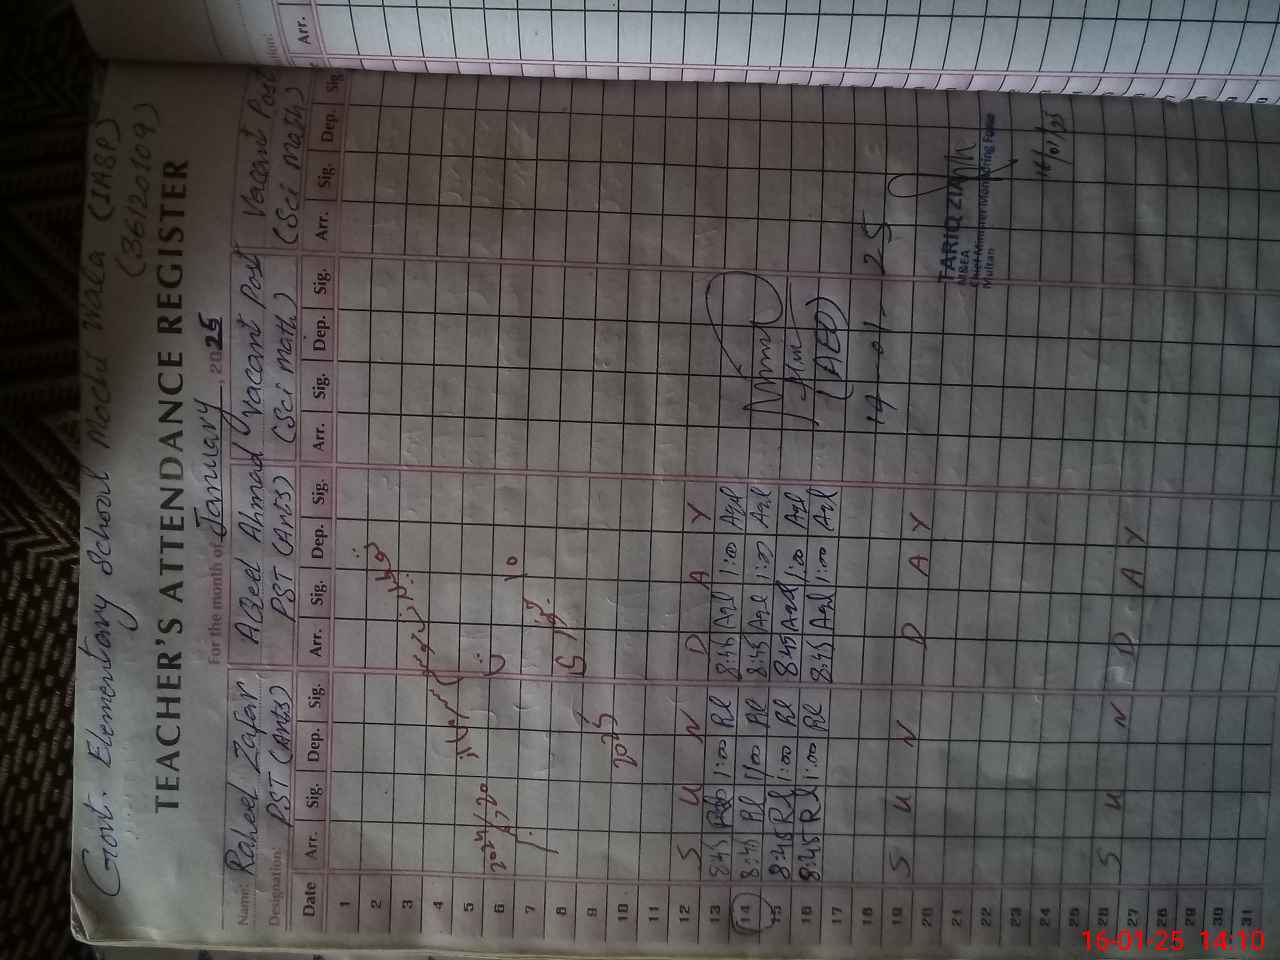 Govt. Elementary School Mochi Wala (IABP)
(36120109)
TEACHER'S ATTENDANCE REGISTER
For the month of January, 2025
Name: Raheel Zafar Aqeel Ahmad Vacant Post Vacant Post
Designation: PST (Arts) PST (Arts) (Sci math) (Sci math)
Date Arr. Sig. Dep. Sig. Arr. Sig. Dep. Sig. Arr. Sig. Dep. Sig. Arr. Sig. Dep. Sig.
1
2
3
4
5
6
7
8
9
10
11
12 S U N D A Y
13 8:45 1:00 Rl 8:45 Aql 1:00 Aql
14 8:45 Rl 1:00 Rl 8:45 Aql 1:00 Aql
15 8:45 Rl 1:00 Rl 8:45 Aql 1:00 Aql
16 8:45 Rl 1:00 Rl 8:45 Aql 1:00 Aql
17
18
19 S U N D A Y
20
21
22
23
24
25
26 S U N D A Y
27
28
29
30
31
2025
(AEO)
14-01-25
TARIQ ZIA
M&EA
Chief Minister Monitoring Force
Multan
16/01/25
Arr.
16-01-25 14:10